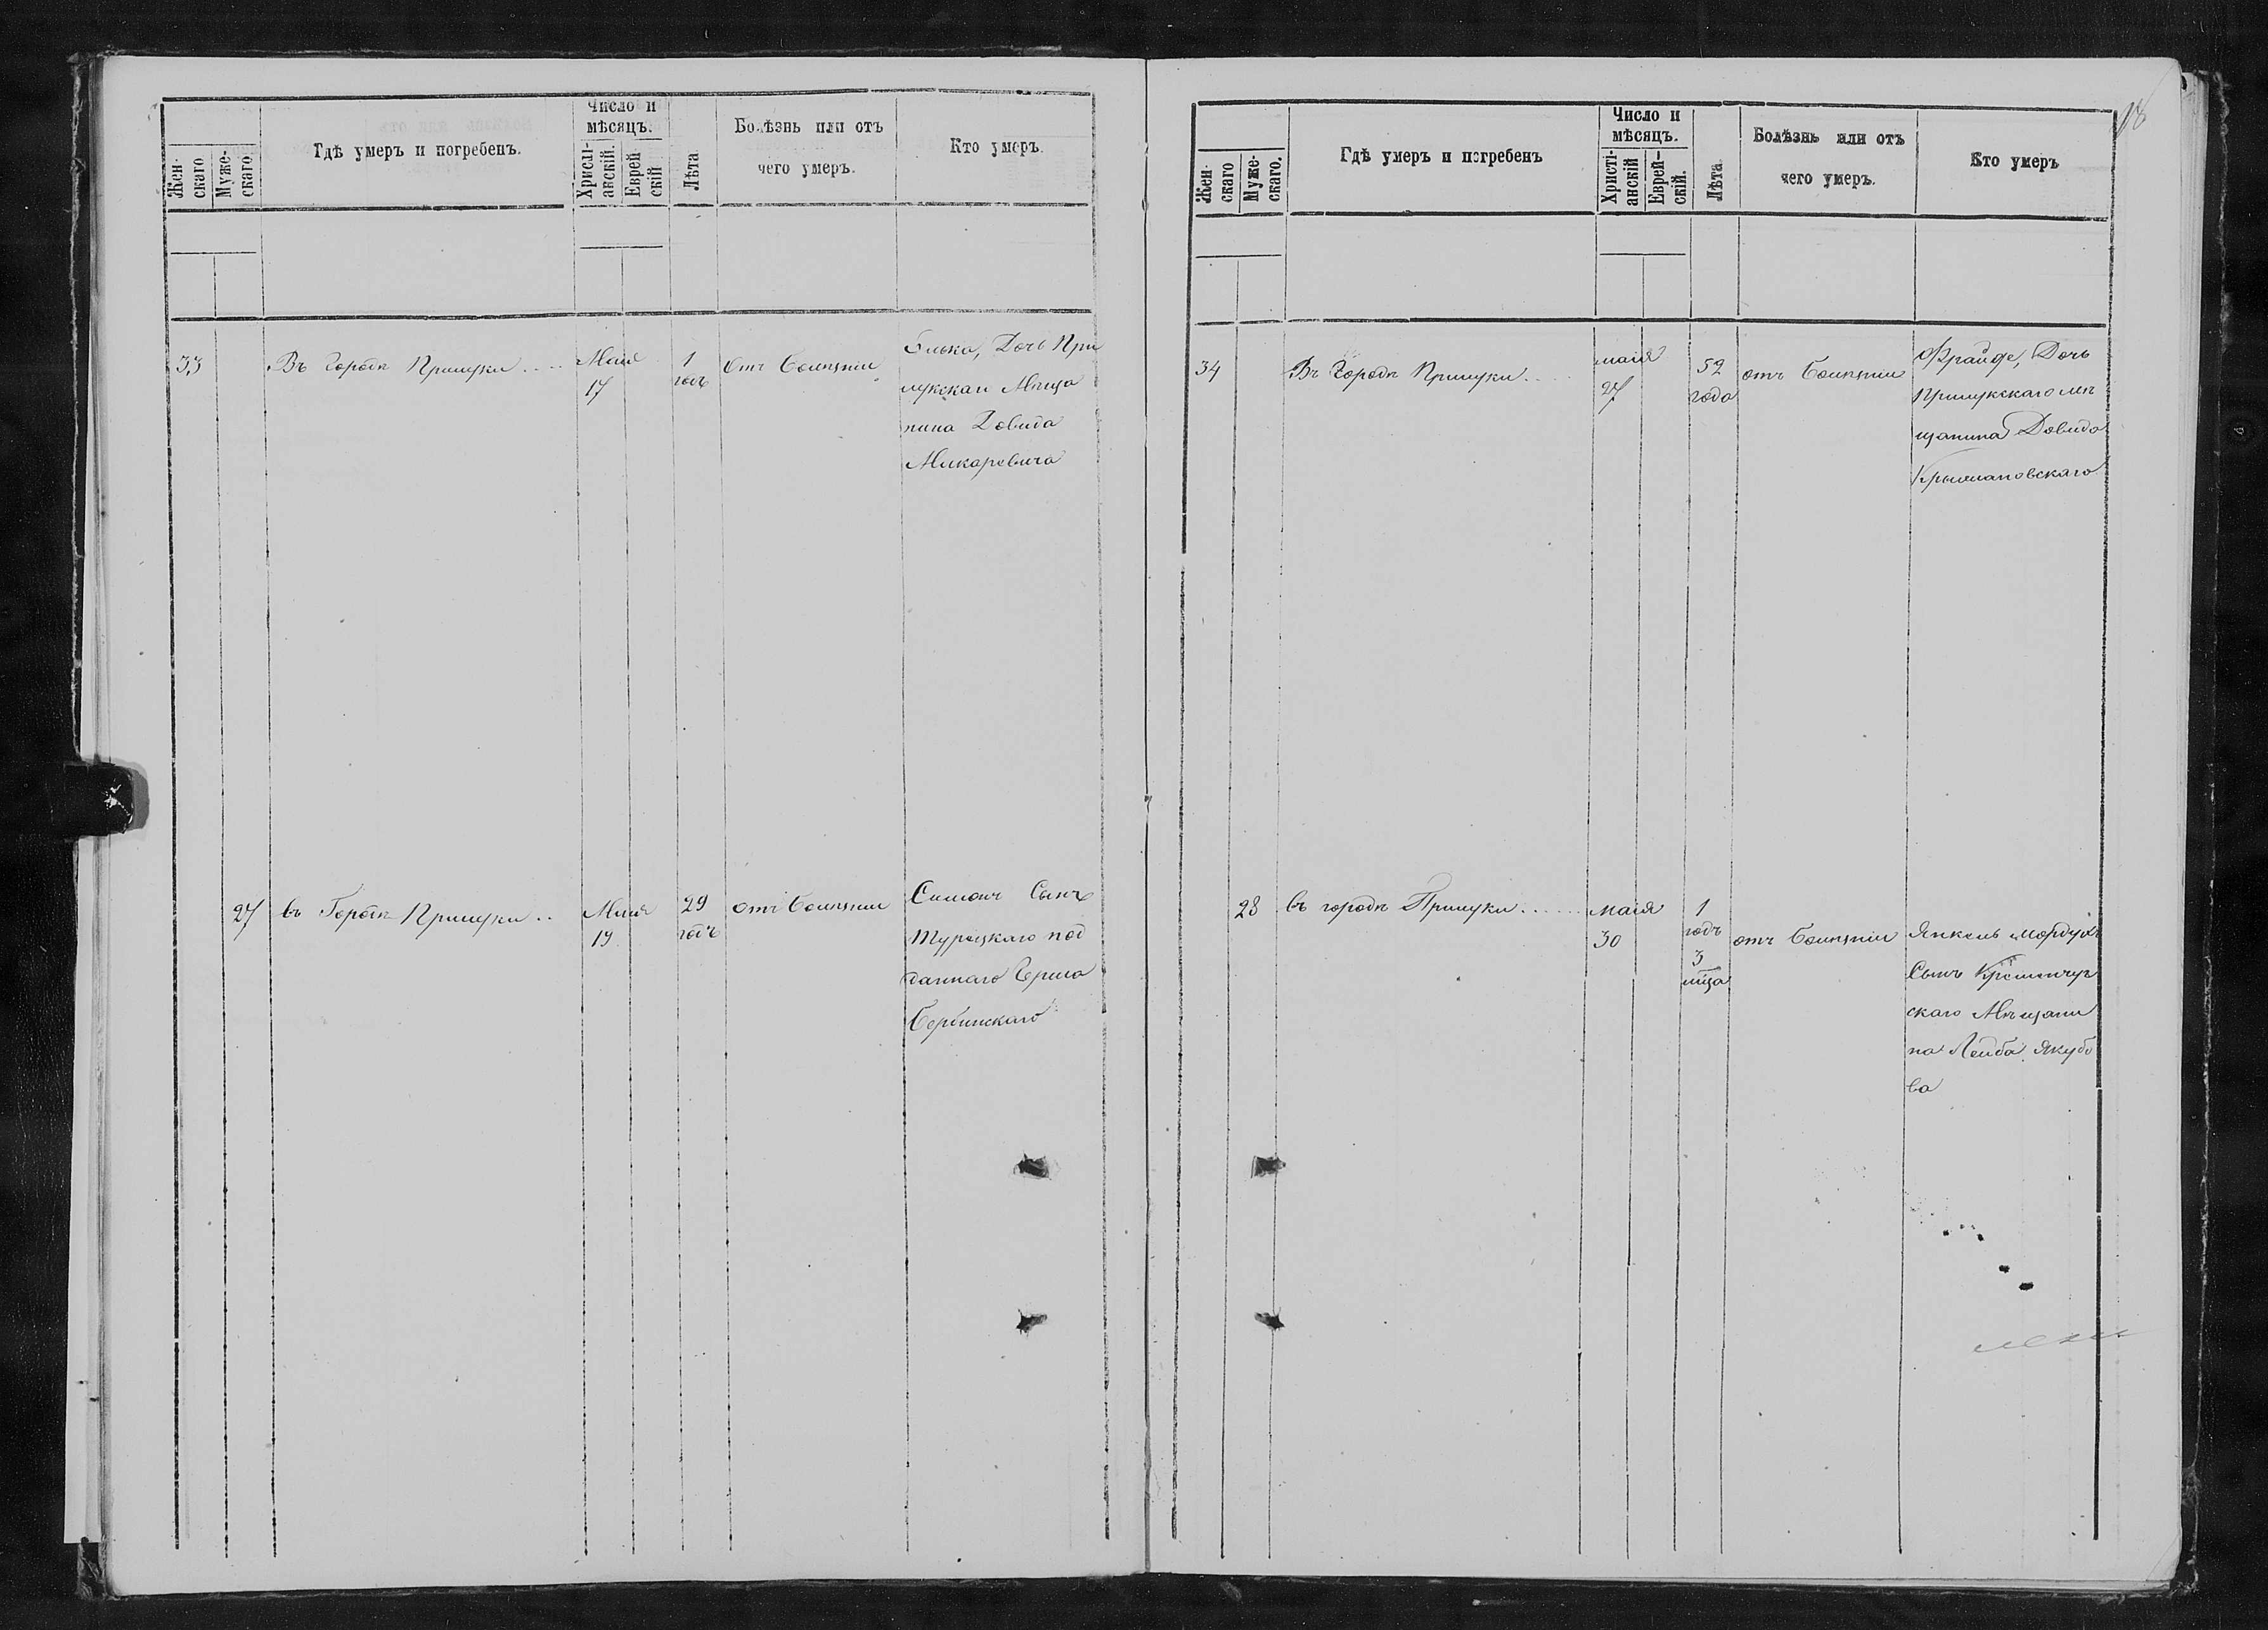 Жен-
скаго
Муже-
скаго
Гдѣ умеръ и погребенъ.
Число и
мѣсяцъ.
Христі-
анскій.
Еврей
скій
Лѣта
Болѣзнь или отъ
чего умеръ.
Кто умеръ.
33
Въ городѣ Прилуки....
Маія
17
1
годъ
отъ болѣзни
Элька, Дочь При
лукскаи Мѣща
нина Довида
Макаревича
27
въ Городѣ Прилуки..
Маія
19
29
годъ
отъ болѣзни
Симонъ Сынъ
Турецкаго под
даннаго Герша
18
Жен-
скаго
Муже-
скаго.
Гдѣ умеръ и погребенъ
Число и
мѣсяцъ.
Христі-
анскій
Еврей-
скій.
Лѣта.
Болѣзнь или отъ
чего умеръ.
Кто умеръ
34
Въ Городѣ Прилуки....
маія
27
52
года
отъ болѣзни
Фрайде, Дочь
Прилукскаго мѣ
щанина Довида
28
въ городѣ Прилуки......
маія
30
1
годъ
3
мца
отъ болѣзни
Янкель Мордухъ
Сынъ Кременчуг
скаго Мѣщани
на Лейба Якубо
ва